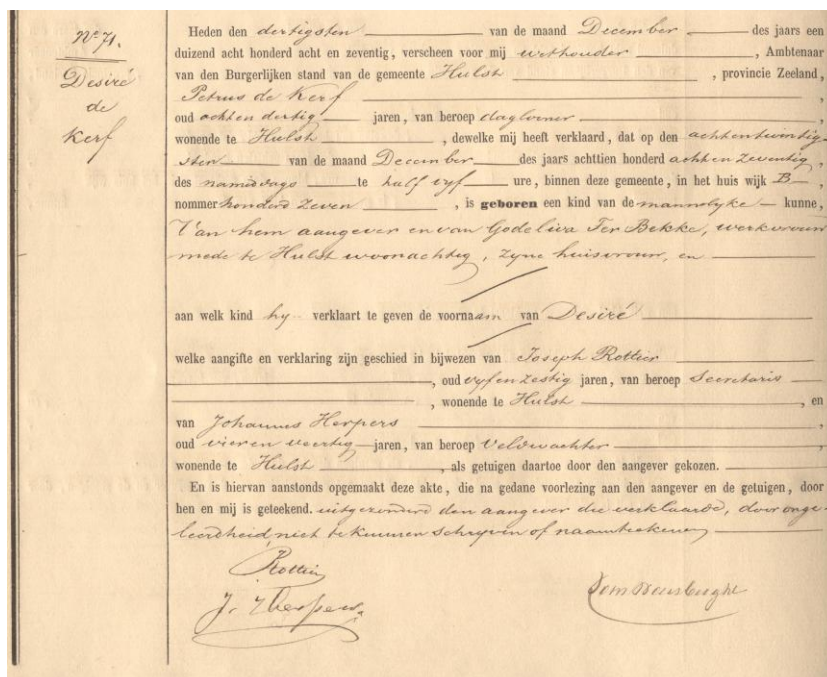 Nº 71.
Desiré
de
Kerf
Heden den dertigsten van de maand December des jaars een
duizend acht honderd acht en zeventig, verscheen voor mij wethouder, Ambtenaar
van den Burgerlijken stand van de gemeente Hulst, provincie Zeeland,
Petrus de Kerf,
oud acht en dertig jaren, van beroep daglooner,
wonende te Hulst, dewelke mij heeft verklaard, dat op den achtentwintig-
sten van de maand December des jaars achttien honderd acht en zeventig,
des namiddags te half vyf ure, binnen deze gemeente, in het huis wijk B,
nommer honderd zeven, is geboren een kind van de mannelyke kunne,
Van hem aangever en van Godeliva Ter Bekke, werkvrouw
mede te Hulst woonachtig, zyne huisvrouw, en
aan welk kind hy verklaart te geven de voornaam van Desiré
welke aangifte en verklaring zijn geschied in bijwezen van Joseph Rottier
, oud vyf en zestig jaren, van beroep Secretaris
, wonende te Hulst, en
van Johannes Herpers,
oud vier en veertig jaren, van beroep Veldwachter,
wonende te Hulst, als getuigen daartoe door den aangever gekozen.
En is hiervan aanstonds opgemaakt deze akte, die na gedane voorlezing aan den aangever en de getuigen, door
hen en mij is geteekend. uitgezonderd den aangever die verklaarde, door onge-
leerdheid niet te kunnen schryven of naamteekenen
Rottier
J. Herpers